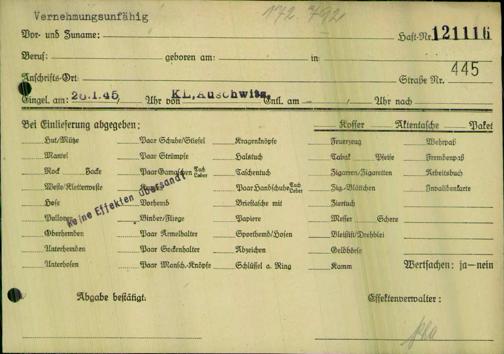 Vernehmungsunfähig
172.792
Vor- und Zuname: Haft-Nr. 121116
Beruf: geboren am: in
Anschrifts-Ort: Straße Nr. 445
Eingel. am: 26.1.45 Uhr von KL.Auschwitz. Entl. am Uhr nach
Bei Einlieferung abgegeben: Koffer Aktentasche Paket
Hut/Mütze Paar Schuhe/Stiefel Kragenknöpfe Feuerzeug Wehrpaß
Mantel Paar Strümpfe Halstuch Tabak Pfeife Fremdenpaß
Rock Jacke Paar Gamaschen Tuch Leder Taschentuch Zigarren/Zigaretten Arbeitsbuch
Weste/Kletterweste Paar Handschuhe Tuch Leder Zig.-Blättchen Invalidenkarte
Hose Vorhemd Brieftasche mit Feuertuch
Pullover Binder/Fliege Papiere Messer Schere
Oberhemden Paar Ärmelhalter Sporthemd/Hosen Bleistift/Drehblei
Unterhemden Paar Sockenhalter Abzeichen Geldbörse
Unterhosen Paar Mansch.-Knöpfe Schlüssel a. Ring Kamm Wertsachen: ja—nein
Keine Effekten übersandt
Abgabe bestätigt: Effektenverwalter: